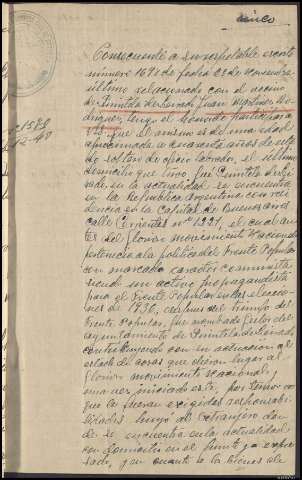 cinco
Consecuente a su respetable escrito
número 1692 de fecha 28 de Noviembre
último relacionado con el vecino
de Quintela de Leirado Juan Martinez
tengo el honor de participar a
que el mismo es de una edad
aproximada a cuarenta años de esta-
do soltero de oficio labrador, el último
domicilio que tuvo fue Quintela de Lei-
rado, en la actualidad se encuentra
en la Republica Argentina con resi-
dencia en la Capital de Buenos Aires
calle Cervantes nº 1221, el cual an-
tes del Glorioso Movimiento Nacional
pertenecia a la politica del Frente Popular
con marcado caracter comunista
siendo un activo propagandista
para el Frente Popular en las eleccio-
nes de 1936, despues del triunfo del
Frente Popular, fue nombrado Gestor del
ayuntamiento de Quintela de Leirado
contribuyendo con su actuación al
estado de cosas que dieron lugar al
Glorioso Movimiento Nacional, y
una vez iniciado este, por temor a
que le fueran exigidas responsabi-
lidades huyó al extranjero don-
de se encuentra en la actualidad
con domicilio en el punto ya expre-
sado, y en cuanto a los bienes de